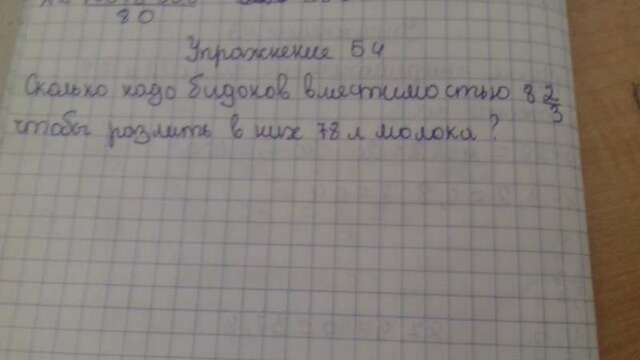 80
Упражнение 54
Сколько надо бидонов вместимостью 8 2/3
чтобы розлить в них 78 л молока?